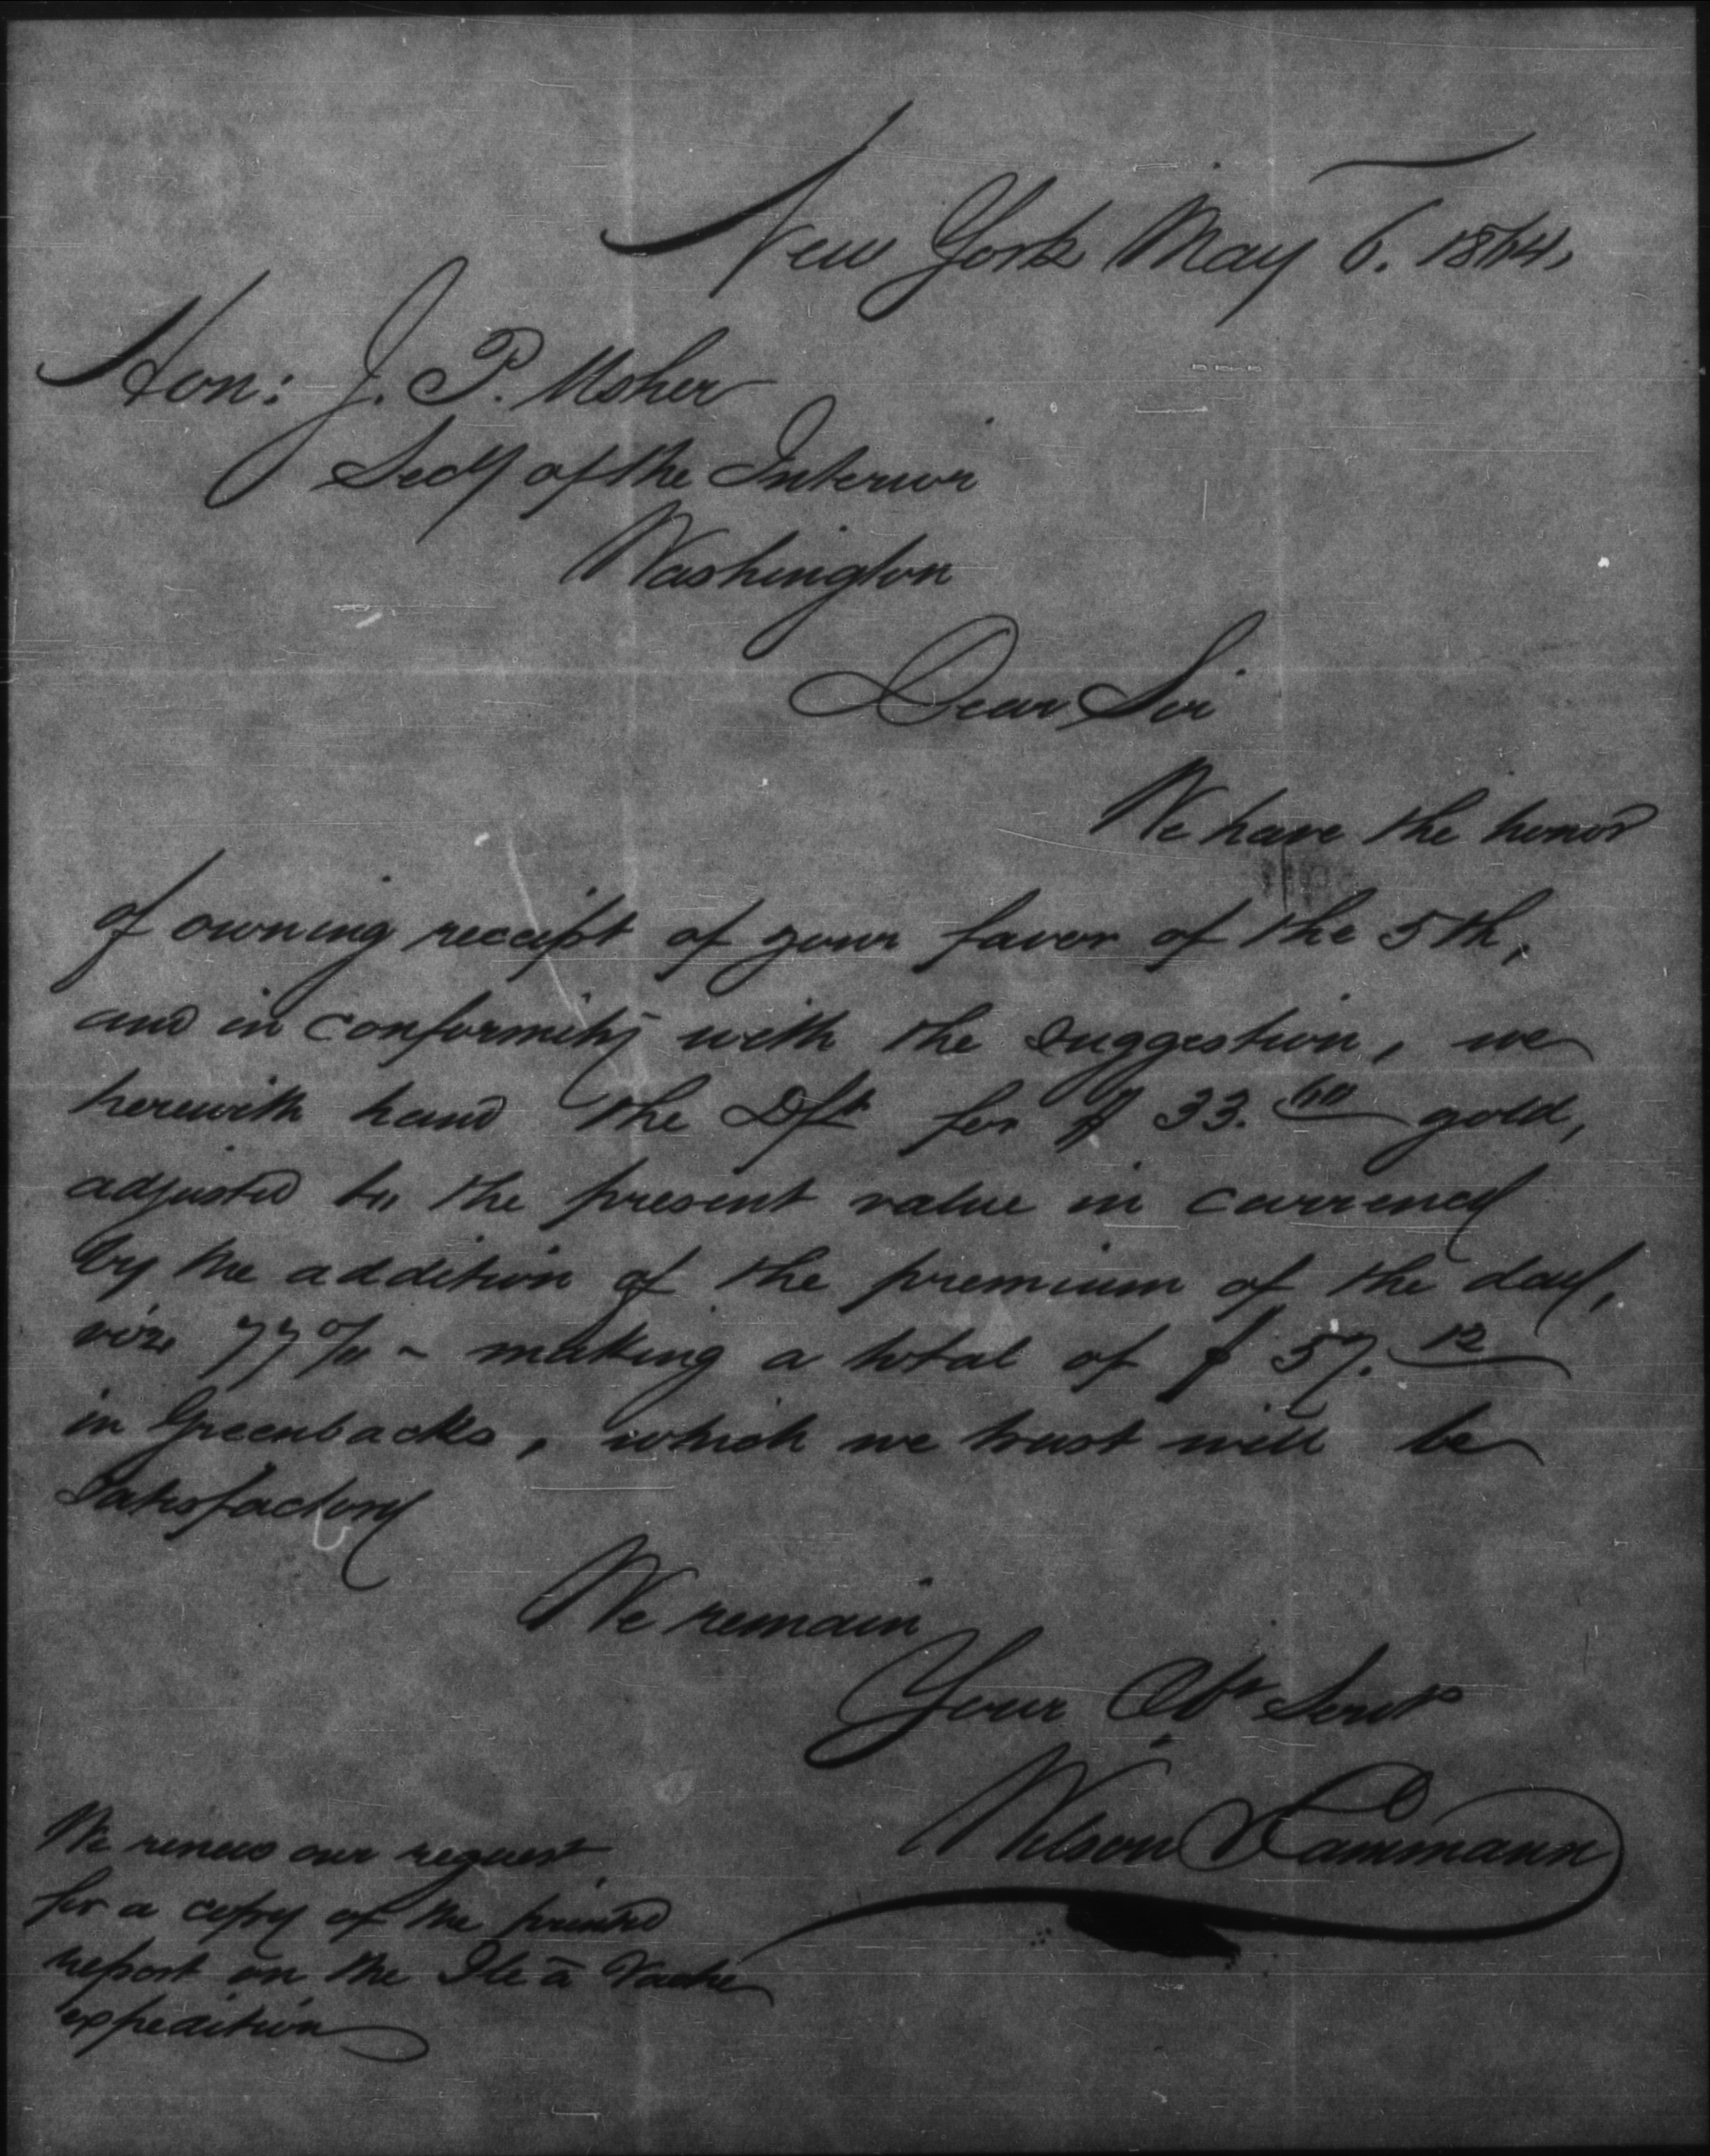 New York May 6. 1864.
Hon: J. P. Usher
Secy of the Interior
Washington
Dear Sir
We have the honor
of owning receipt of your favor of the 5th,
and in conformity with the suggestion, we
herewith hand the Dft for $ 33. 60 gold,
adjusted to the present value in currency
by the addition of the premium of the day,
viz. 77% - making a total of $ 57. 12
in Greenbacks, which we trust will be
Satisfactory
We remain
Your Obt Servts
Wilson & Cammann
We renew our request
for a copy of the printed
report on the Ile à Vache
expedition